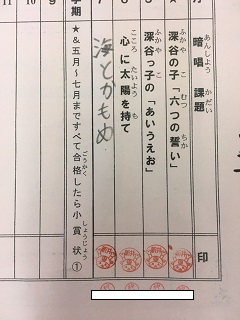 月
あんしょう かだい
暗唱 課題
印
ふかや こ むつ ちか
★ 深谷の子「六つの誓い」
ふかや こ
深谷っ子の「あいうえお」
こころ たいよう も
心に太陽を持て
7 海とかもめ
学期
ごうかく しょうじょう
★&五月~七月まですべて合格したら小賞状①
9
10
11